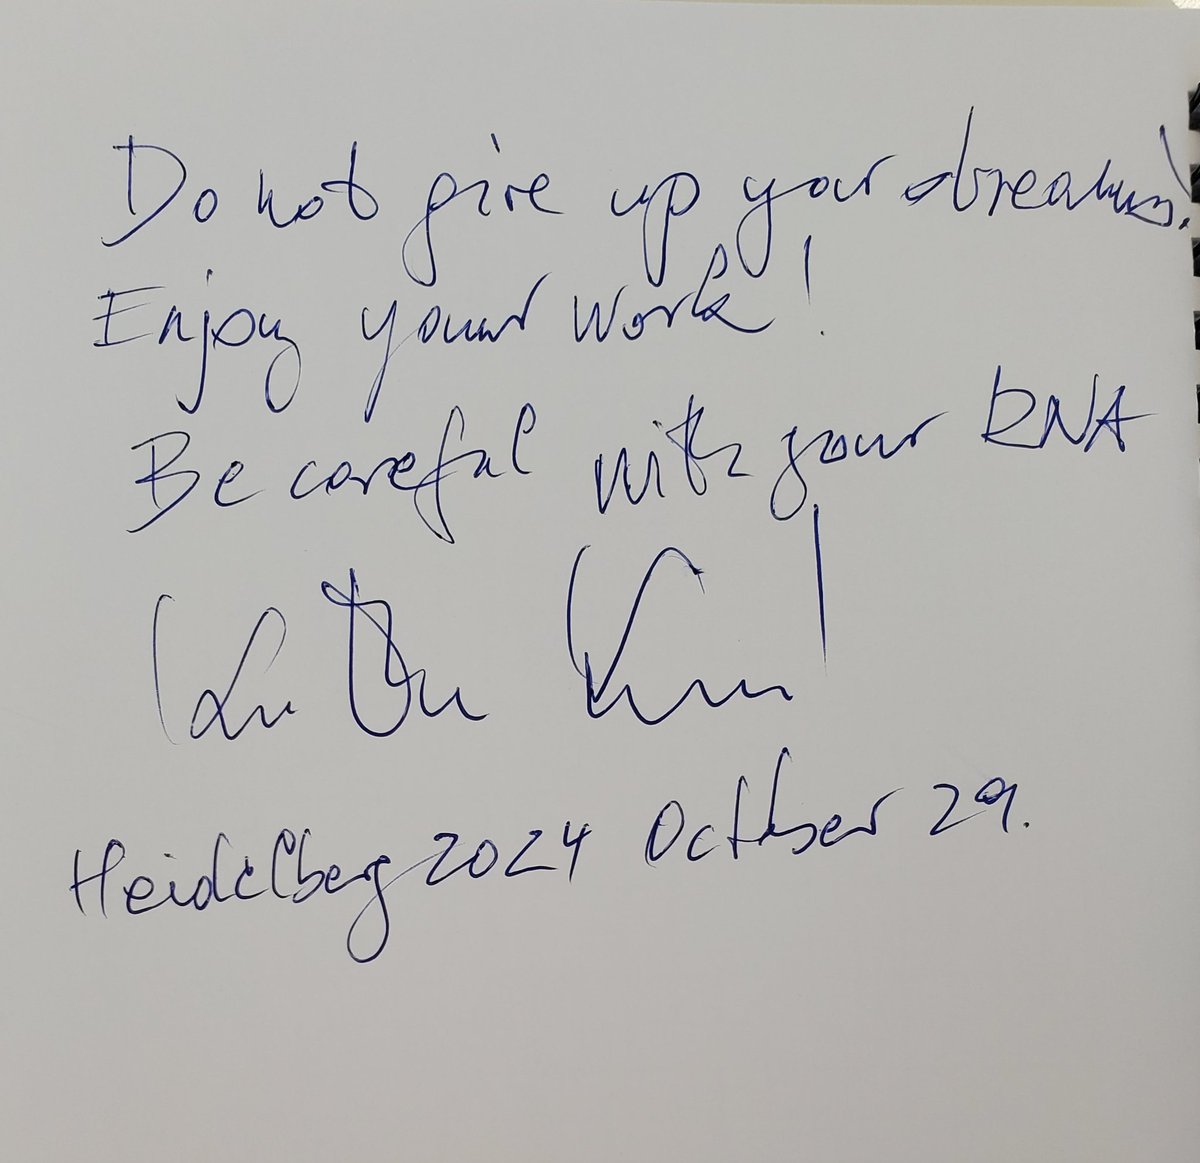 Do not give up your dreams!
Enjoy your work!
Be careful with your RNA
Heidelberg 2024 October 29.